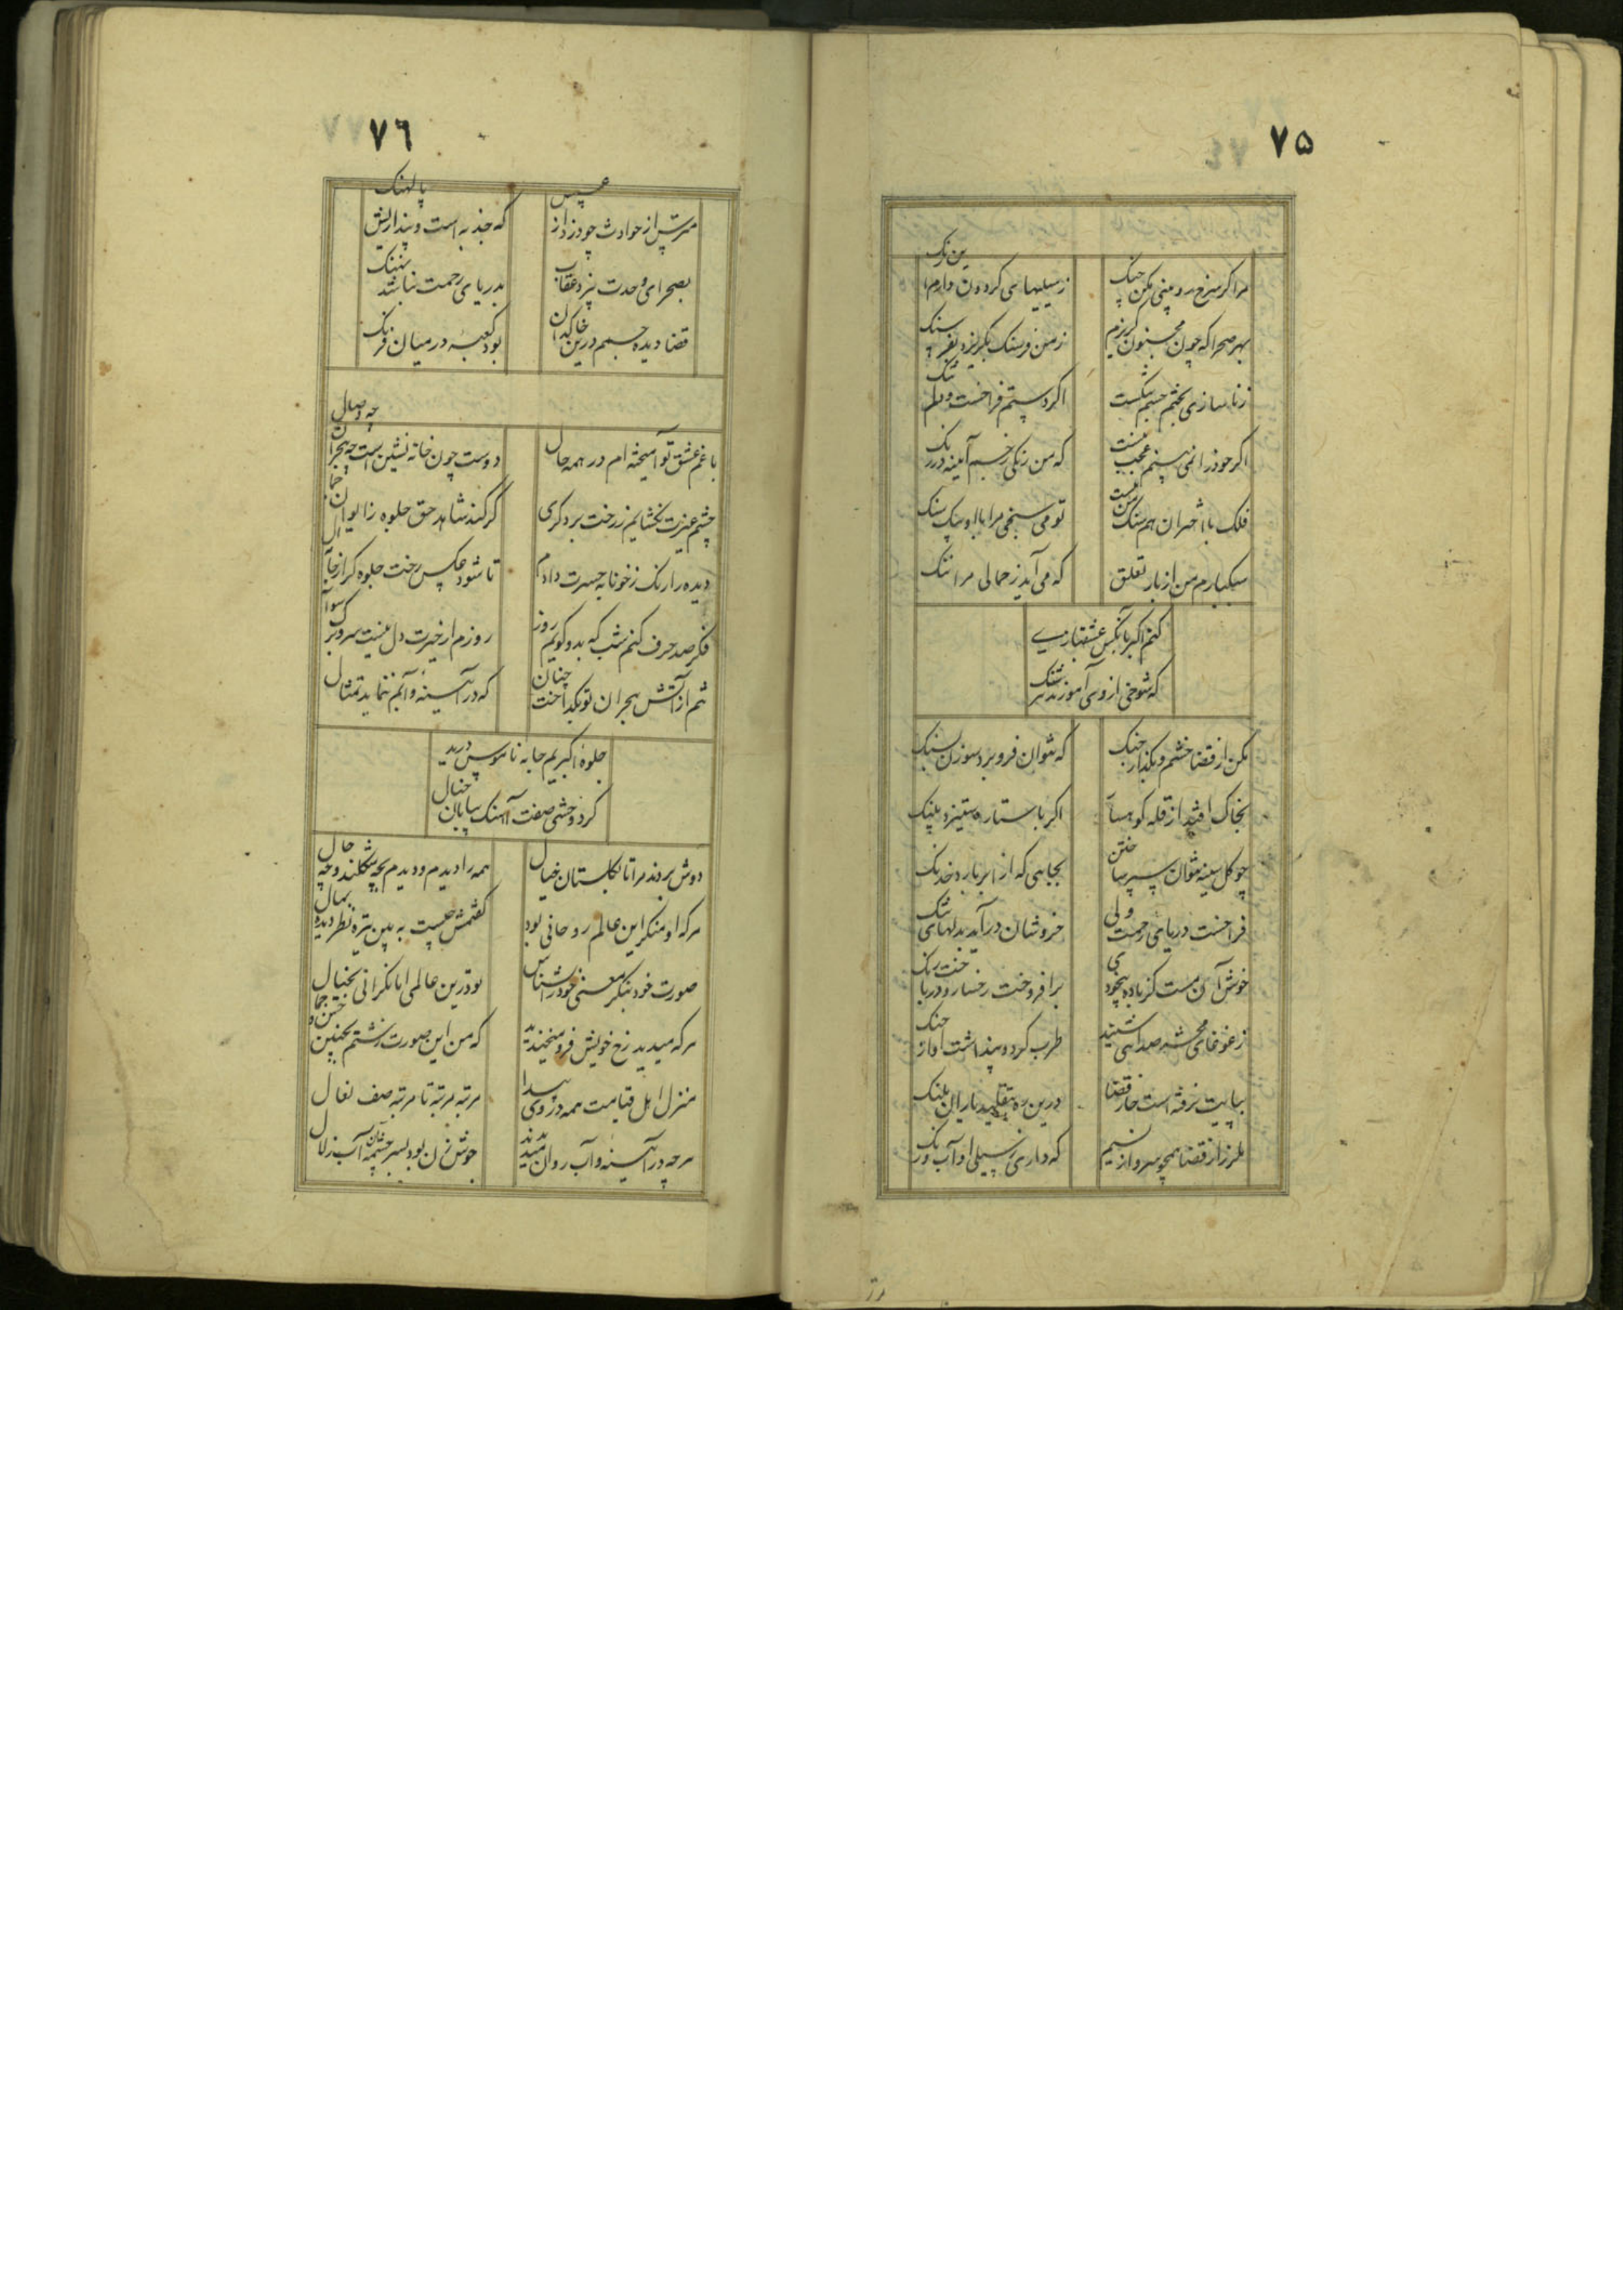 ۷۵
مرا گر سرخ رو بینی مکن جنگ
ز سیلیهای گردون دارم این رنگ
بهر صحرا که چون مجنون گریزم
ز من فرسنگ بگریزد بفرسنگ
ز ناسازی بختم جسم بشکست
اگر دستم فراخست و دلم تنگ
اگر خود را نمی بینم عجب نیست
که من زنگی رخم آیینه در زنگ
فلک با اختران هم سنگ من نیست
تو می سنجی مرا با او بیک سنگ
سبکبارم من از بار تعلق
که می آید ز حمالی مرا ننگ
کنم اکبر بآنکس عشقبازی
که شوخی از وی آموزند
مکن از قضا خشم و بگذار جنگ
که نتوان فرو برد سوزن بسنگ
بخاک افتد از قله کوهسار
اگر با ستاره ستیزد پلنگ
چو گل سینه نتوان سپر ساختن
بجایی که از ابر بارد خدنگ
فراخست دریای رحمت ولی
خروشان درآید بدلهای تنگ
خوش آن مست کز باده بیخودی
برافروخت رخسار و درباخت رنگ
ز غوغای محشر صدایی شنید
طرب کرد و پنداشت آواز چنگ
بپایت نرفته است خار قضا
درین ره بتقلید یاران بلنگ
بلرز از قضا همچو سرو از نسیم
که داری ز سیلی او آب و رنگ
۷۶
مترس از حوادث چو دزد از عسس
که جذبه است و پنداریش پالهنگ
بصحرای وحدت نپرد عقاب
بدریای رحمت نباشد نهنگ
قضا دیده جسم درین خاکدان
بود کعبه در میان فرنگ
با غم عشق تو آمیخته ام در همه حال
دوست چون خانه نشین است چه هجران چه وصال
چشم عبرت نگشایم ز رخت بر دگری
گر کند شاهد حق جلوه ز ایوان جمال
دیده را رنگ ز خونابه حسرت دادم
تا شود عکس رخت جلوه گر از جای
فکر صد حرف کنم شب که بدو گویم روز
روزم از غیرت دل نیست سر و برگ سؤال
تنم از آتش هجران تو بگداخت چنان
که در آیینه و آبم ننماید تمثال
جلوهٔ اکبریم جامه ناموس درید
کرد وحشی صفت آهنگ بیابان خیال
دوش بردند مرا تا بگلستان خیال
همه را دیدم و دیدم بچه شکلند و چه حال
هر که او منکر این عالم روحانی بود
گفتمش چیست به بین تیره نظر دیده بمال
صورت خود بنگر معنی خود را بشناس
بودرین عالمی اما نگرانی بخیال
هر که میدید رخ خویش فرو میخندید
که من این صورت زشتم بچنین حسن و جمال
منزل اهل قیامت همه در وی پیدا
مرتبه مرتبه تا مرتبه صف نعال
هر چه در آیینه و آب روان میدیدند
خوش تر از آن بود بسر چشمهٔ آب زلال